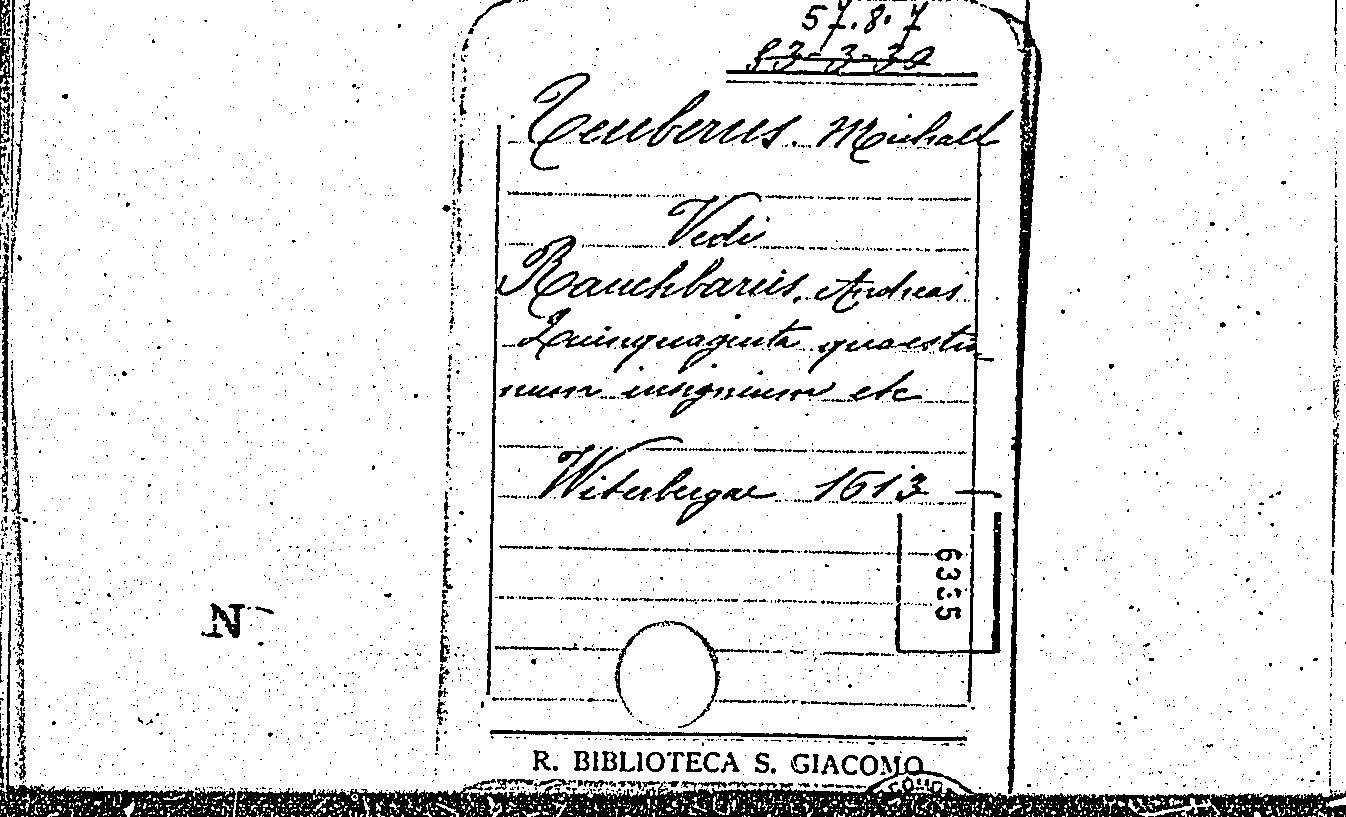 57.8.7
53-3-39
Teuberus. Michael
Vedi
Rauchbarus, Andreas
Quinquaginta quaestio
num insignium etc
Witerbergae 1613
6335
N
R. BIBLIOTECA S. GIACOMO